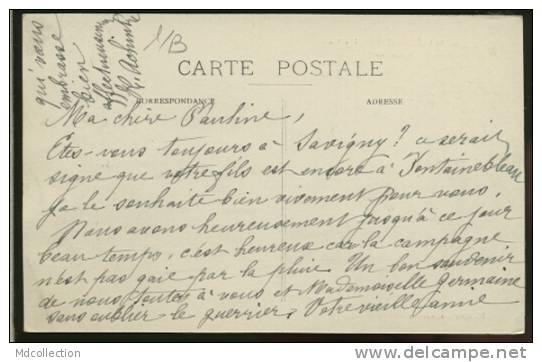 1/B
CARTE POSTALE
CORRESPONDANCE
ADRESSE
Ma chère Pauline,
Êtes-vous toujours à Savigny? ce serait
signe que votre fils est encore à Fontainebleau
Je le souhaite bien vivement pour vous.
Nous avons heureusement jusqu'à ce jour
beau temps, c'est heureux car la campagne
n'est pas gaie par la pluie. Un bon souvenir
de nous toutes à vous et Mademoiselle Germaine
sans oublier le guerrier. Votre vieille amie
qui vous
embrasse
bien
affectueusement
Mdcollection
www.delcampe.net